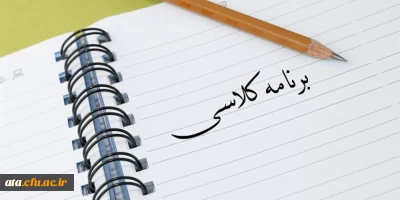 برنامه کلاسی
ata.cfu.ac.ir